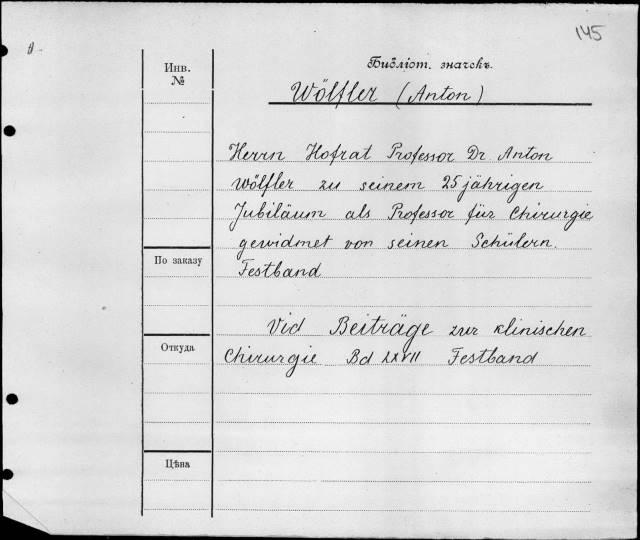 145
Библіот. значекъ.
Инв.
№
Wölfler (Anton)
Herrn Hofrat Professor Dr Anton
Wölfler zu seinem 25 jährigen
Jubiläum als Professor für Chirurgie
gewidmet von seinen Schülern.
По заказу
Festband
Vid Beiträge zur klinischen
Откуда
Chirurgie Bd LXVII Festband
Цѣна